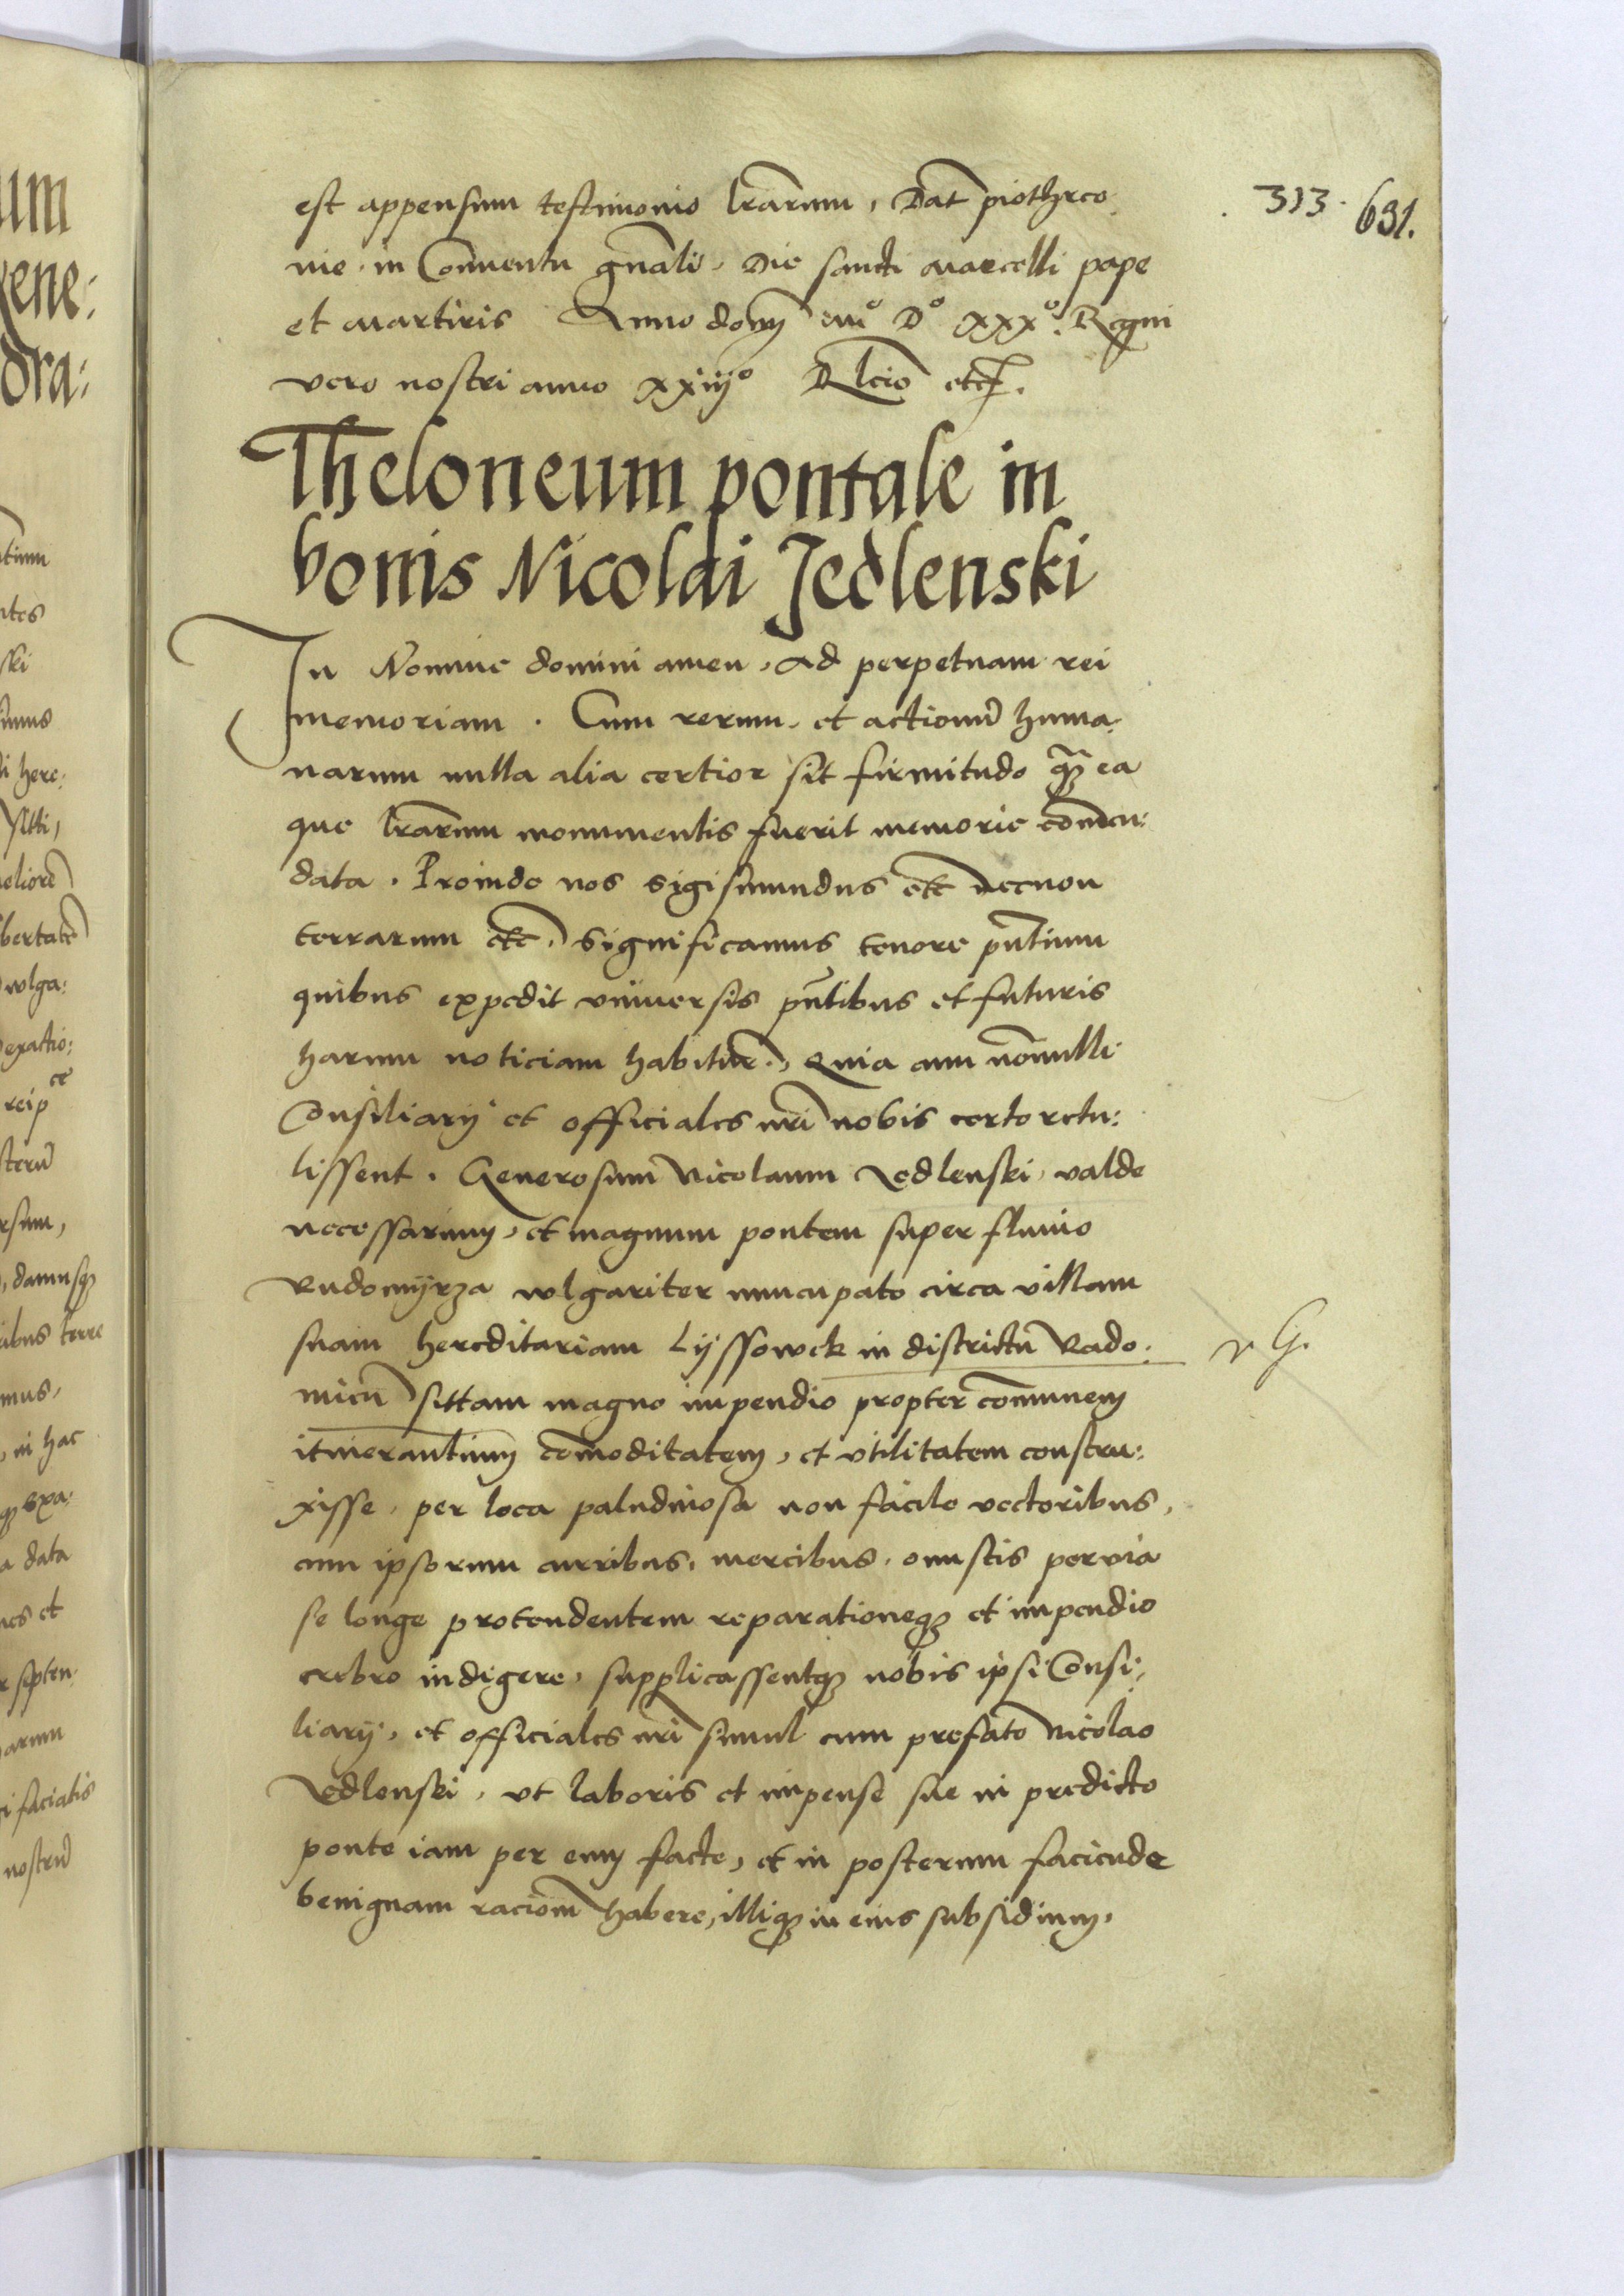 313. 691.
est appensum testimonio lrarum, Dat piothrco
nie in Conuentu gnali, Die sancti Marcelli pape
et Martiris Anno domj Mo Do xxxo. Regni
vero nostri anno xxiijo Rlcio etc.
Theloneum pontale in
bonis Nicolai Jedlenski
In Nomine domini amen, Ad perpetuam rei
memoriam. Cum rerum et actionu huma:
narum nulla alia certior sit firmitudo q̃ ea
que lrarum monumentis fuerit memorie comen:
data. Proinde nos Sigismundus etc necnon
terrarum etc. Significamus tenore pntium
quibus expedit vniuersis pntibus et futuris
harum noticiam habitur., Quia cum nonnulli
Consiliarij et officiales nri nobis certo retu:
lissent. Generosum Nicolaum Jedlenski, valde
necessarium, et magnum pontem super fluuio
Radomyrza wlgariter nuncupato circa villam
suam hereditariam Lyssowek in districtu Rado:
v G.
mien sittam magno impendio propter comunem
itinerantium comoditatem, et vtilitatem constru:
xisse, per loca paludinosa non facile vectoribus,
cum ipsorum curribus, mercibus, onustis pervia
se longe protendentem reparationeq3 et impendio
crebro indigere, supplicassentq3 nobis ipsi Consi:
liarij, et officiales nri simul cum prefato Nicolao
Jedlenski, vt laboris et impense sue in predicto
ponte iam per eum facte, et in posterum faciende
benignam racioem habere, illiq3 in eius subsidium,